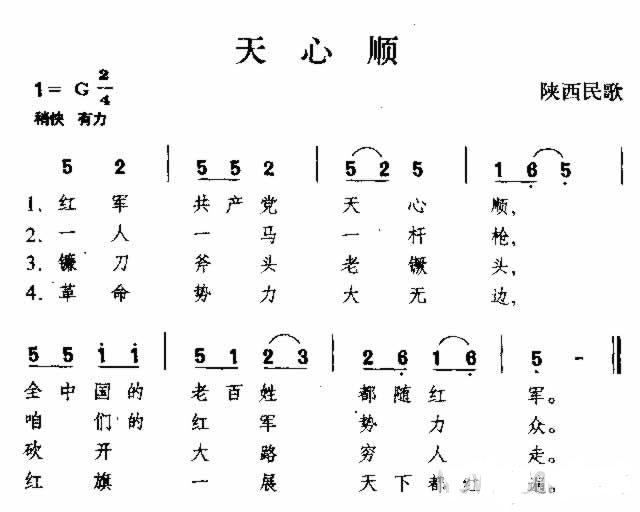 天心顺
1= G 2/4
陕西民歌
稍快 有力
5 2 | 5 5 2 | 5 2 5 | 1 6 5 |
1. 红军 共产党 天心顺,
2. 一人 一马 一杆枪,
3. 镰刀 斧头 老镢头,
4. 革命 势力 大无边,
5 5 i i | 5 1 2 3 | 2 6 1 6 | 5 - ‖
全中国的 老百姓 都随红军。
咱们的 红军 势力众。
砍开 大路 穷人走。
红旗 一展 天下都红遍。